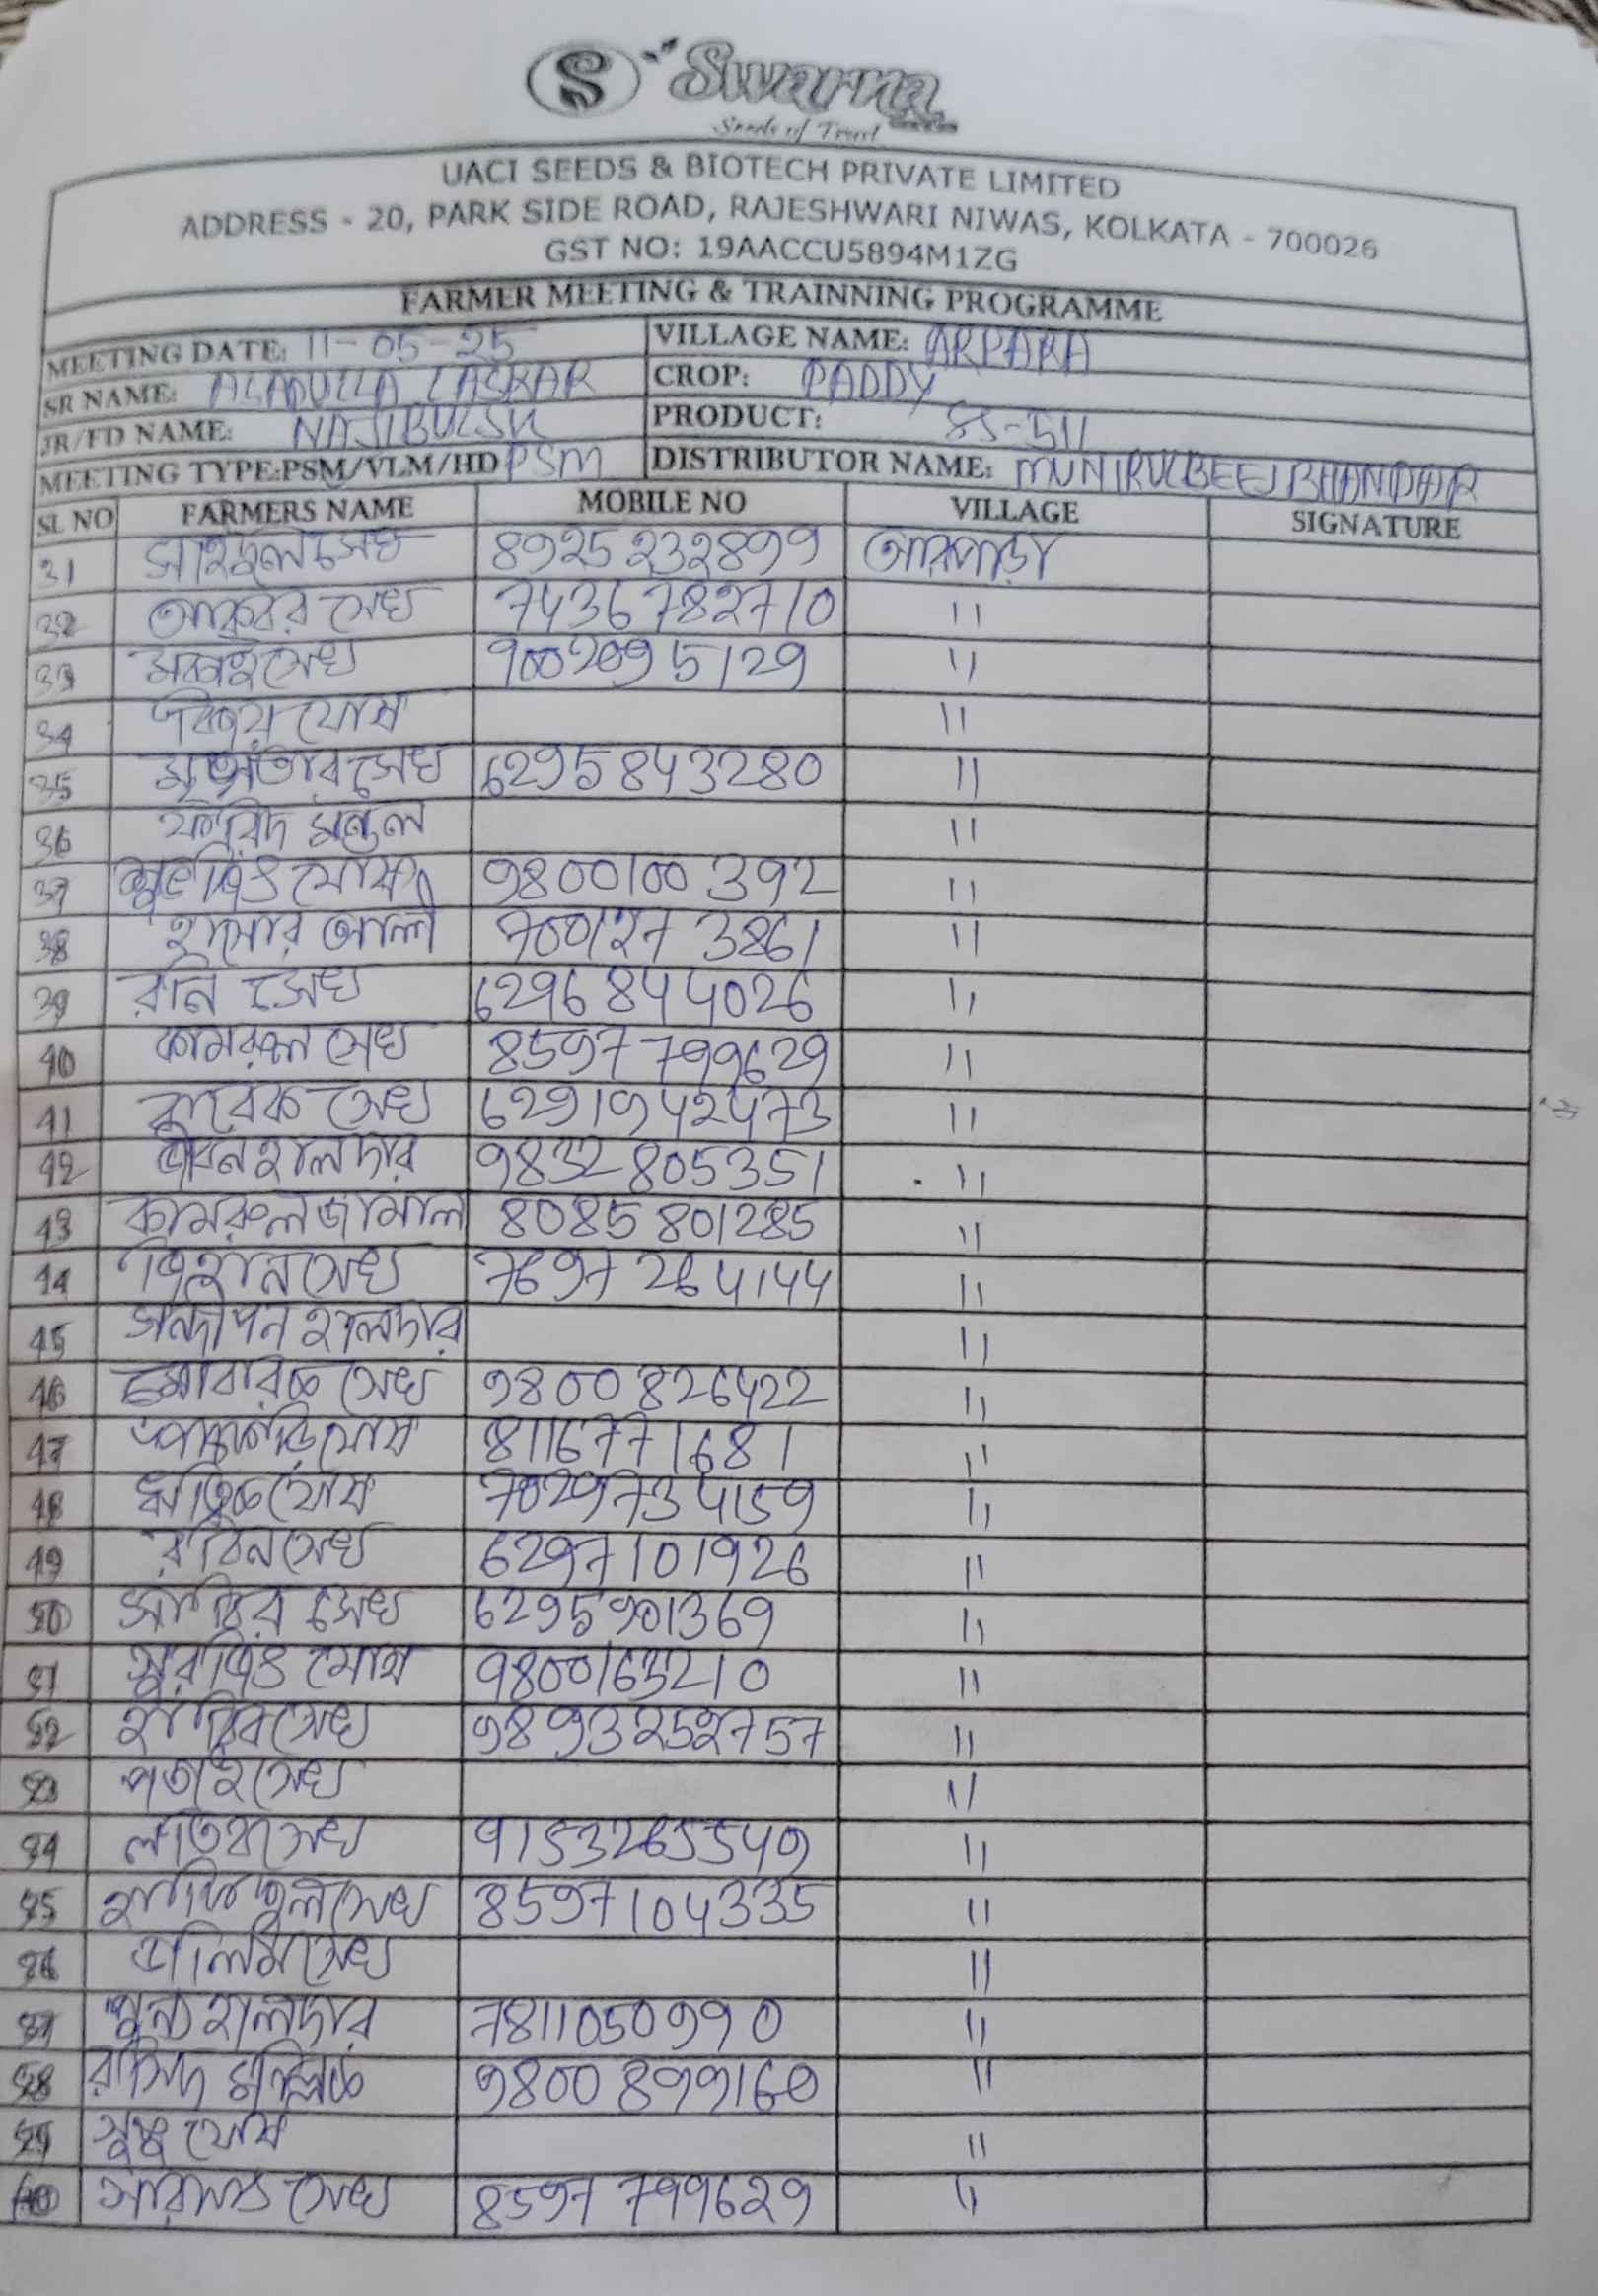 S Swarna
Seeds of Trust
UACI SEEDS & BIOTECH PRIVATE LIMITED
ADDRESS - 20, PARK SIDE ROAD, RAJESHWARI NIWAS, KOLKATA - 700026
GST NO: 19AACCU5894M1ZG
FARMER MEETING & TRAINNING PROGRAMME
MEETING DATE: 11-05-25 VILLAGE NAME: ARPARA
SR NAME: LASKAR CROP: PADDY
JR/FD NAME: NAJIBULSK PRODUCT: SS-511
MEETING TYPE:PSM/VLM/HD PSM DISTRIBUTOR NAME: MUNIRULBEEJBHANDAR
SL NO FARMERS NAME MOBILE NO VILLAGE SIGNATURE
31 সাইদুল সেখ 8925232899 আরপাড়া
32 আকবর সেখ 7436782710 "
33 সেখ 9002095129 "
34 বিজয় ঘোষ "
35 সেখ 6295843280 "
36 মন্ডল "
37 ঘোষ 9800100392 "
38 আলি 7001273861 "
39 রনি সেখ 6296844026 "
40 কামরুল সেখ 8597799629 "
41 সেখ 6291942473 "
42 জীবন হালদার 9832805351 "
43 কামরুল জামাল 8085801285 "
44 সেখ 7697264144 "
45 সন্দীপন হালদার "
46 মোবারক সেখ 9800826422 "
47 ঘোষ 8116771681 "
48 ঘোষ 7029734159 "
49 রবিন সেখ 6297101926 "
50 সেখ 6295901369 "
51 সুরজিত ঘোষ 9800163210 "
52 সেখ 9893252757 "
53 সেখ "
54 লতিব সেখ 9153265549 "
55 সেখ 8597104335 "
56 সেখ "
57 হালদার 7811050990 "
58 রসিদ মল্লিক 9800899160 "
59 ঘোষ "
60 সেখ 8597799629 "